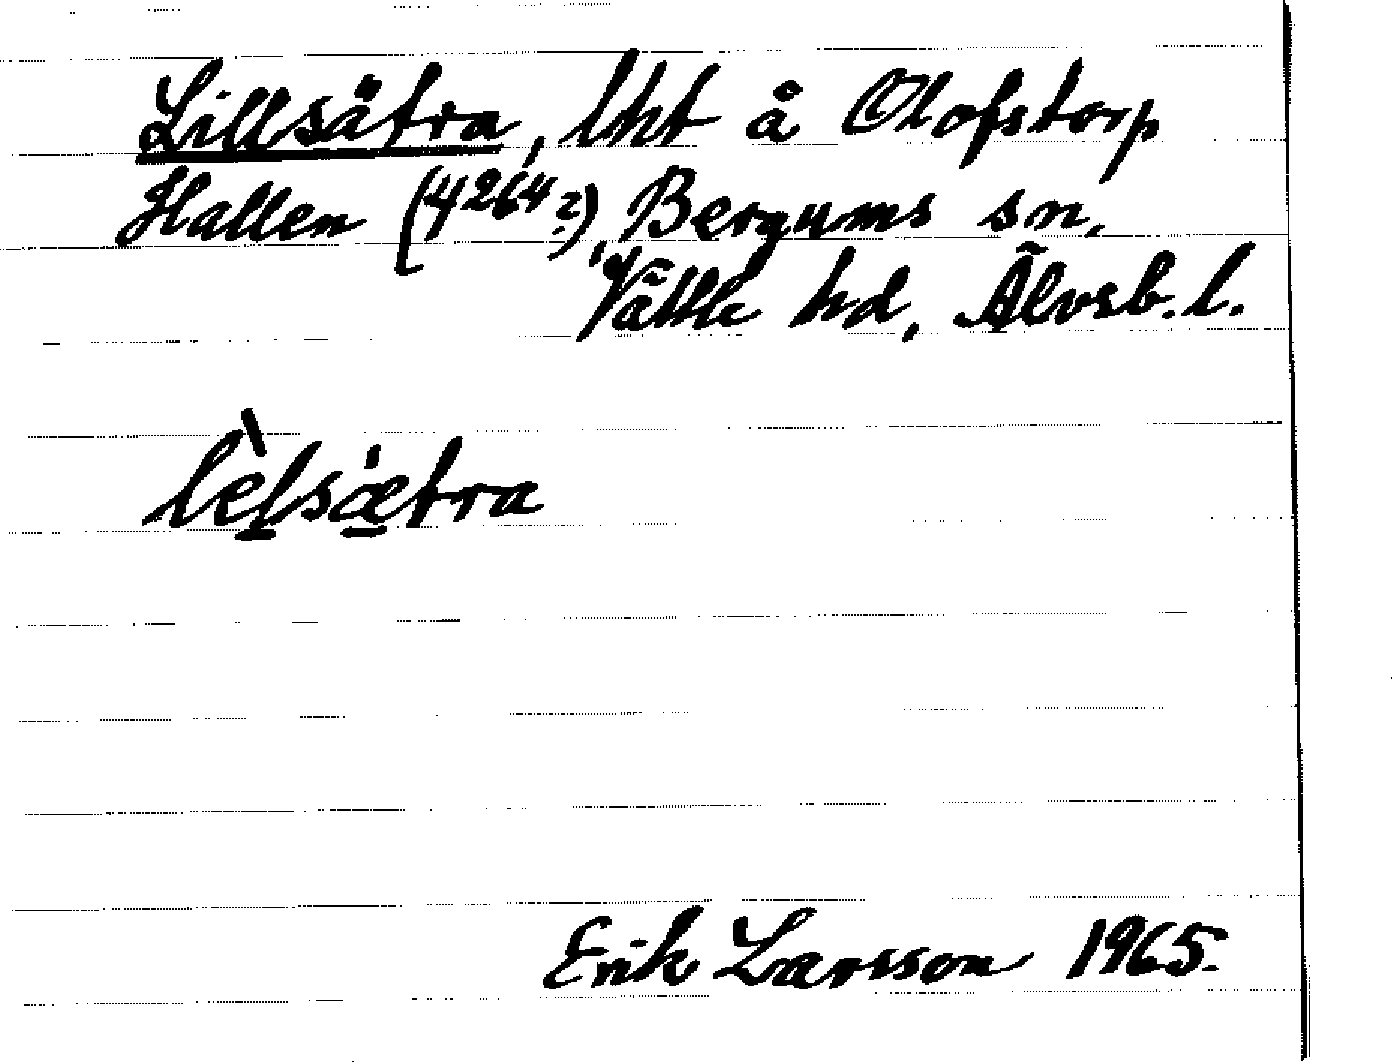 Lillsätra, lht å Olofstorp
Hallen (4264?), Bergums sn,
Vättle hd, Älvsb. l.
lèlsætra
Erik Larsson 1965.